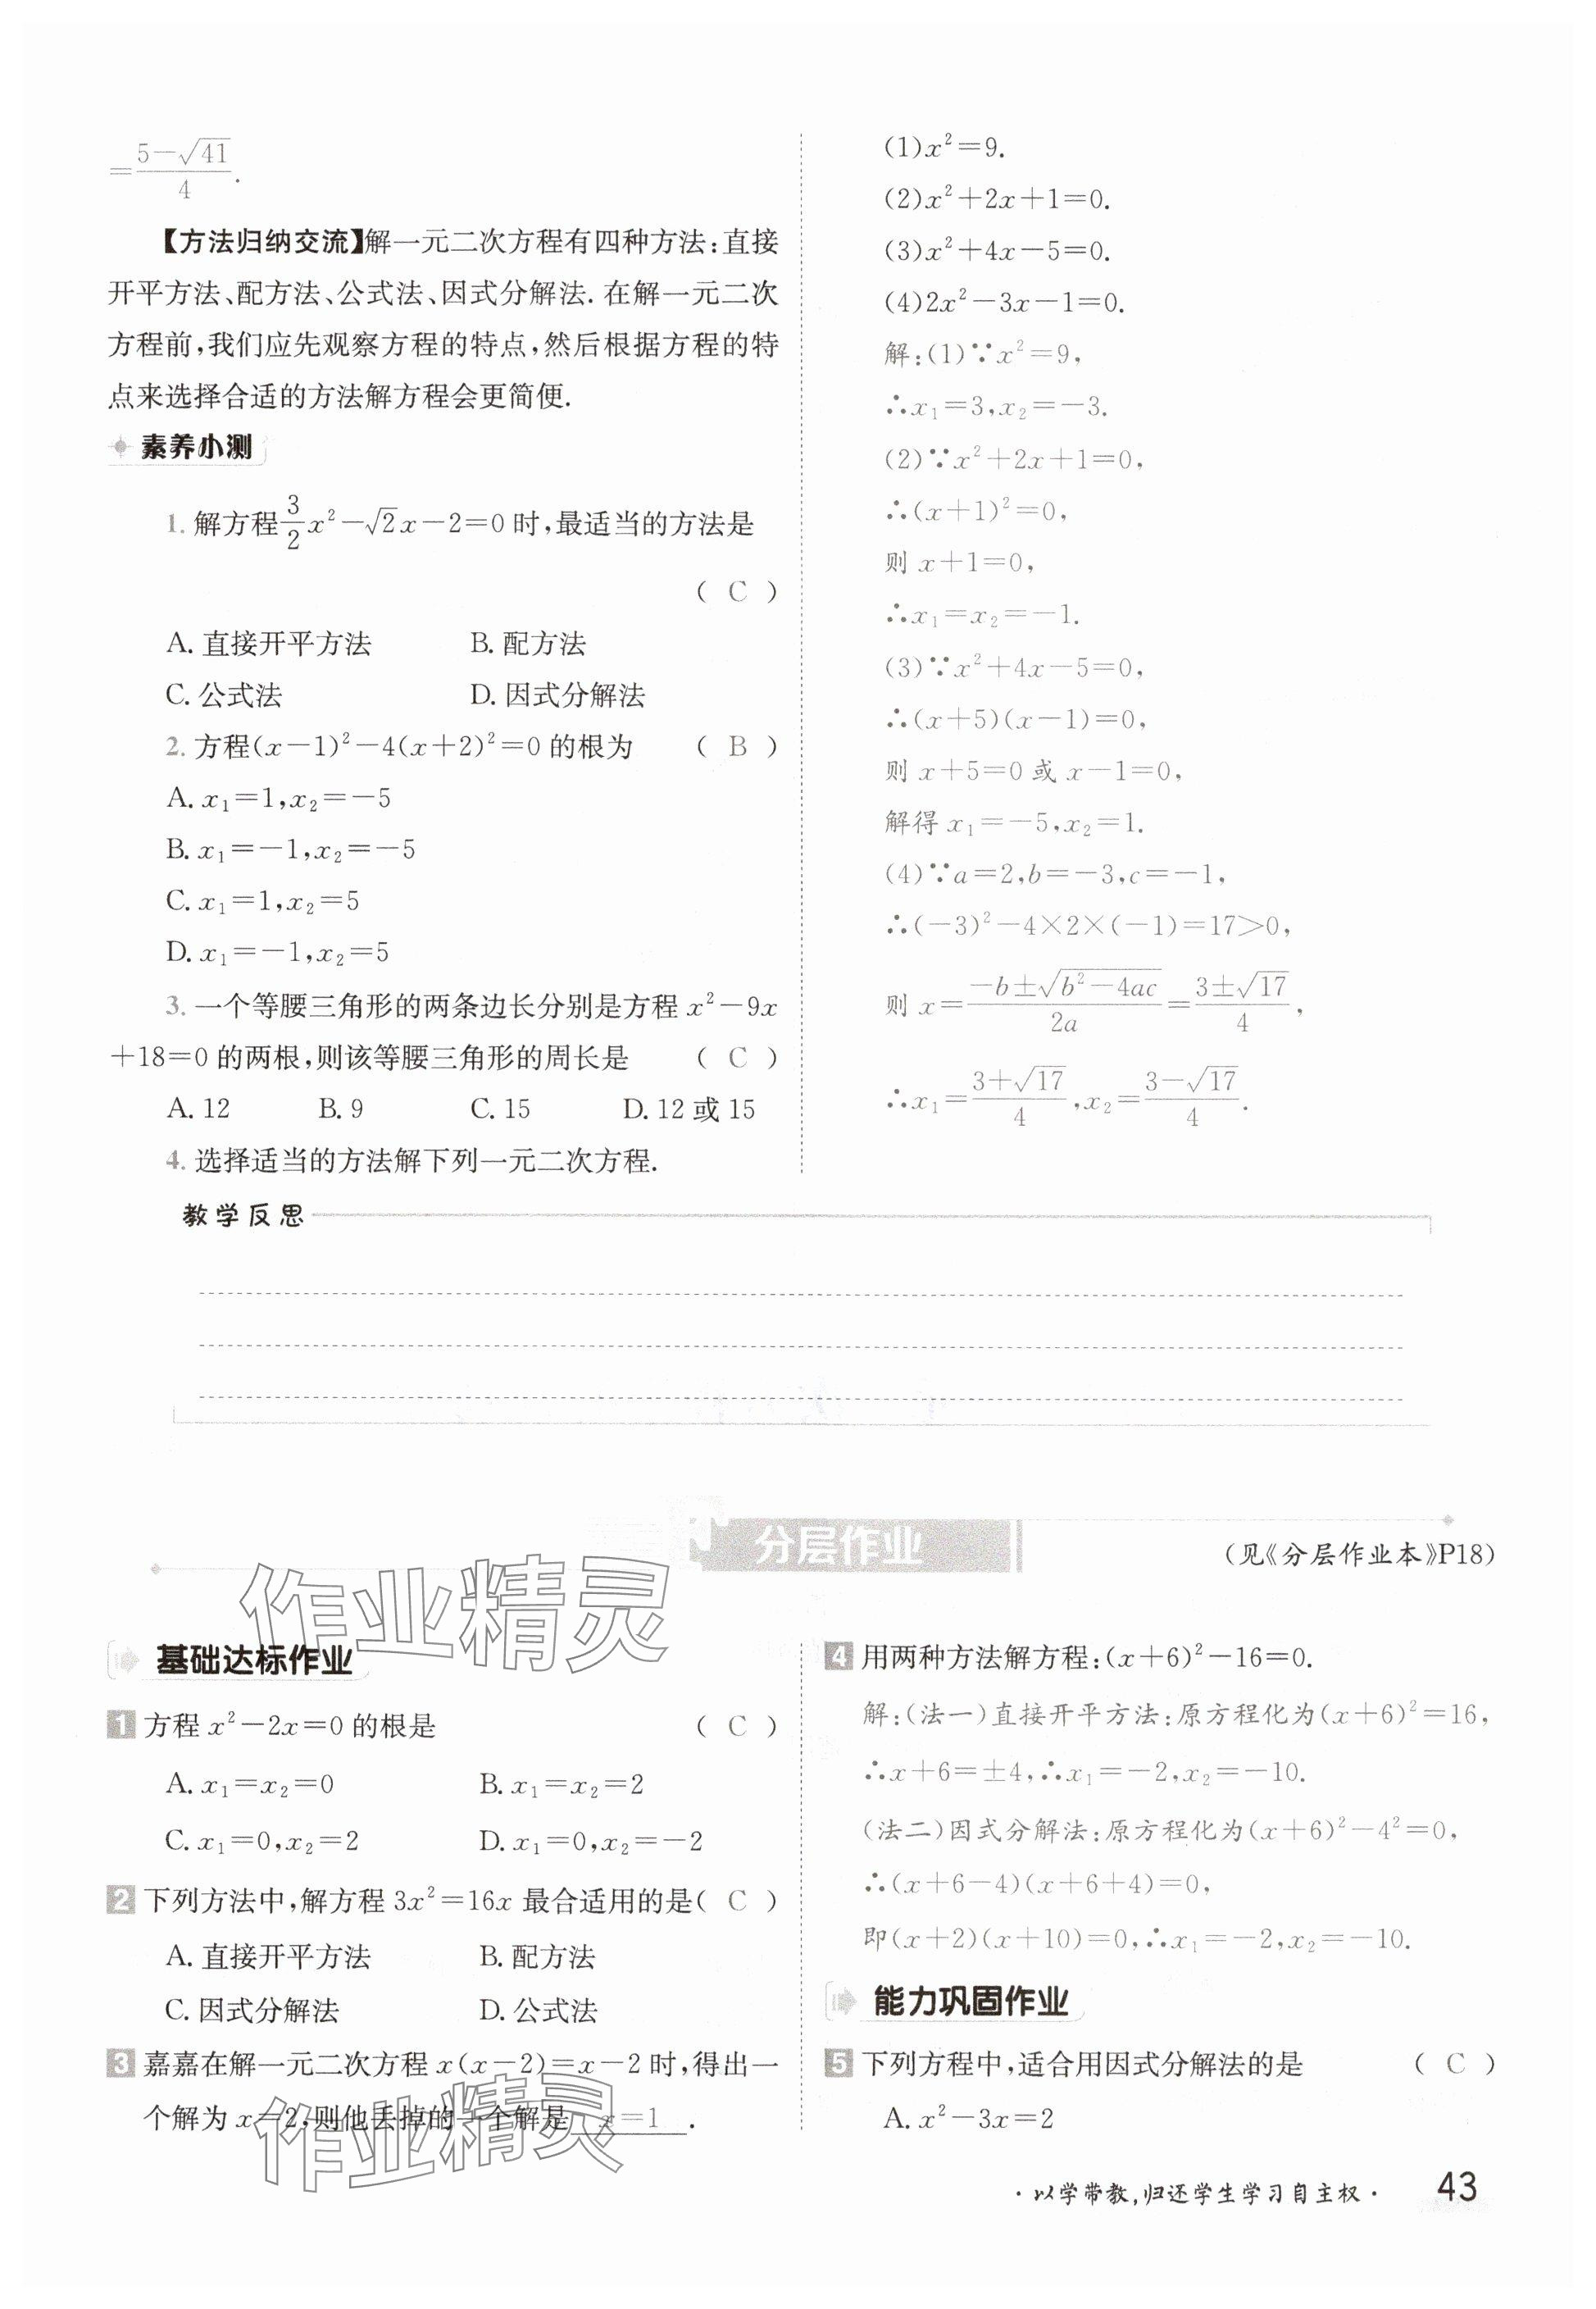 =(5-√41)/4.
【方法归纳交流】解一元二次方程有四种方法:直接
开平方法、配方法、公式法、因式分解法. 在解一元二次
方程前,我们应先观察方程的特点,然后根据方程的特
点来选择合适的方法解方程会更简便.
素养小测
1. 解方程3/2x²-√2x-2=0时,最适当的方法是
( C )
A. 直接开平方法 B. 配方法
C. 公式法 D. 因式分解法
2. 方程(x-1)²-4(x+2)²=0的根为 ( B )
A. x₁=1,x₂=-5
B. x₁=-1,x₂=-5
C. x₁=1,x₂=5
D. x₁=-1,x₂=5
3. 一个等腰三角形的两条边长分别是方程x²-9x
+18=0的两根,则该等腰三角形的周长是 ( C )
A. 12 B. 9 C. 15 D. 12或15
4. 选择适当的方法解下列一元二次方程.
(1)x²=9.
(2)x²+2x+1=0.
(3)x²+4x-5=0.
(4)2x²-3x-1=0.
解:(1)∵x²=9,
∴x₁=3,x₂=-3.
(2)∵x²+2x+1=0,
∴(x+1)²=0,
则x+1=0,
∴x₁=x₂=-1.
(3)∵x²+4x-5=0,
∴(x+5)(x-1)=0,
则x+5=0或x-1=0,
解得x₁=-5,x₂=1.
(4)∵a=2,b=-3,c=-1,
∴(-3)²-4×2×(-1)=17>0,
则x=(-b±√(b²-4ac))/2a=(3±√17)/4,
∴x₁=(3+√17)/4,x₂=(3-√17)/4.
教学反思
分层作业
(见《分层作业本》P18)
作业精灵
基础达标作业
1 方程x²-2x=0的根是 ( C )
A. x₁=x₂=0 B. x₁=x₂=2
C. x₁=0,x₂=2 D. x₁=0,x₂=-2
2 下列方法中,解方程3x²=16x最合适用的是( C )
A. 直接开平方法 B. 配方法
C. 因式分解法 D. 公式法
3 嘉嘉在解一元二次方程x(x-2)=x-2时,得出一
个解为x=2,则他丢掉的一个解是 x=1 .
作业精灵
4 用两种方法解方程:(x+6)²-16=0.
解:(法一)直接开平方法:原方程化为(x+6)²=16,
∴x+6=±4,∴x₁=-2,x₂=-10.
(法二)因式分解法:原方程化为(x+6)²-4²=0,
∴(x+6-4)(x+6+4)=0,
即(x+2)(x+10)=0,∴x₁=-2,x₂=-10.
能力巩固作业
5 下列方程中,适合用因式分解法的是 ( C )
A. x²-3x=2
·以学带教,归还学生学习自主权·
43